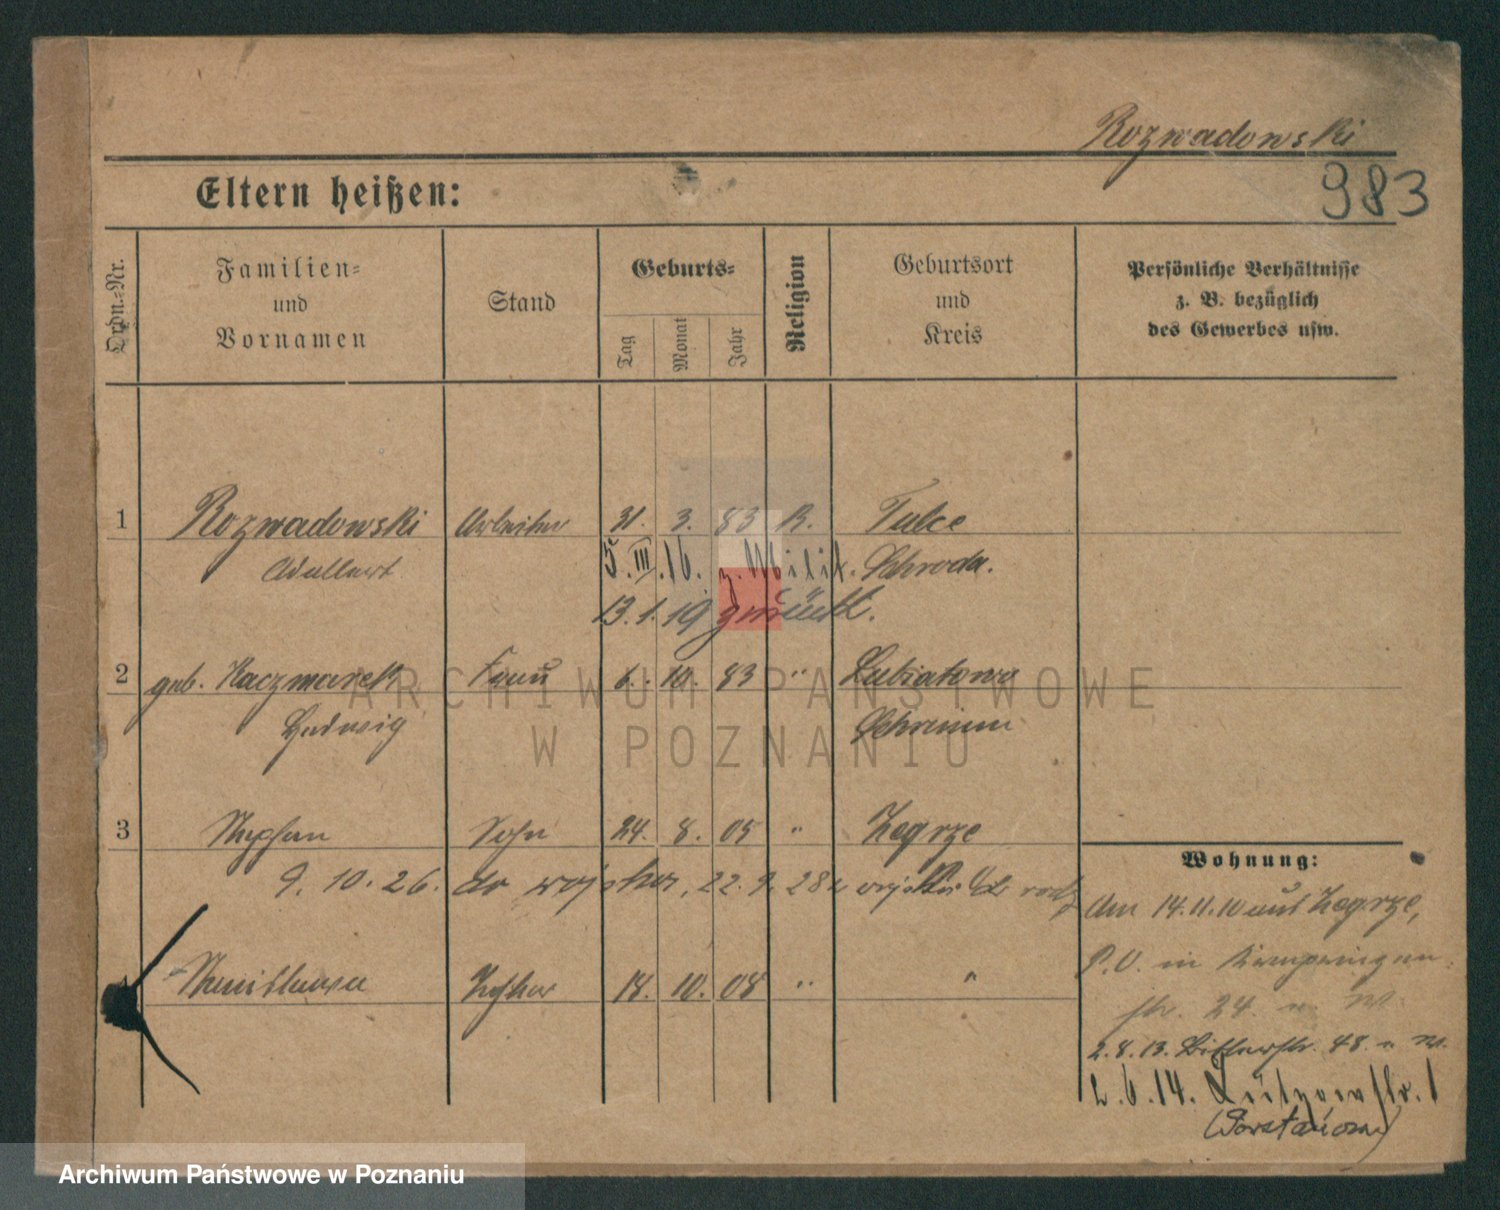 Rozwadowski
983
Eltern heißen:
Ordn.=Nr.
Familien=
und
Vornamen
Stand
Geburts=
Tag
Monat
Jahr
Religion
Geburtsort
und
Kreis
Persönliche Verhältnisse
z. B. bezüglich
des Gewerbes usw.
1 Rozwadowski Arbeiter 31. 3. 83 K. Tulce
Adalbert Schroda.
5.III.16. z. Milit.
13.1.19 zurück.
2 geb. Kaczmarek Frau 6. 10. 83 " Lubiatowo
Hedwig Schrimm
3 Stephan Sohn 24. 8. 05 " Zegrze
9. 10. 26. do wojska, 22. 9. 28 z wojska
4 Stanislawa Tochter 18. 10. 08 " "
Wohnung:
Am 14.11.10 aus Zegrze,
P.O. in
str. 24. n. W.
2.8.13. Bitterstr. 48. n W.
2.6.14. Lützowstr. 1
ARCHIWUM PAŃSTWOWE
W POZNANIU
Archiwum Państwowe w Poznaniu